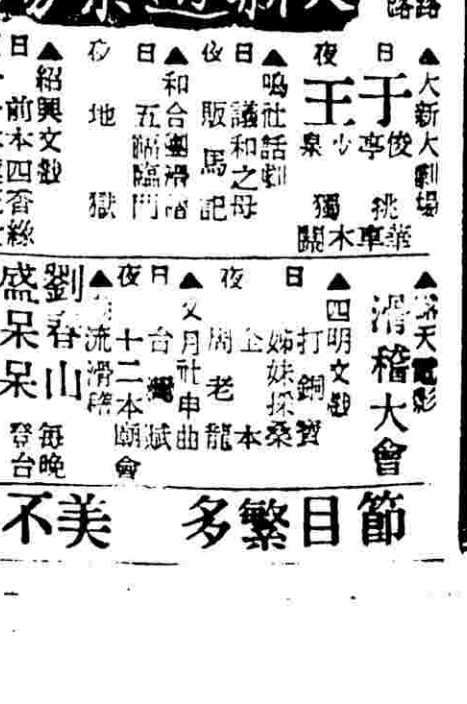 ▲大新大劇場
日 于俊亭 挑華車
夜 王少泉 獨木關
▲鳴社話劇
日 議和之母
夜 販馬記
▲和合團滑稽
日 五福臨門
夜 地獄
▲紹興文戲
日 前本四香緣
▲露天電影
滑稽大會
▲四明文戲
日 打銅寶
姊妹採桑
夜 全本
周老龍
▲文月社申曲
日 台
夜 十二本廟會
▲流滑稽
劉春山
盛呆呆
每晚登台
節目繁多 美不